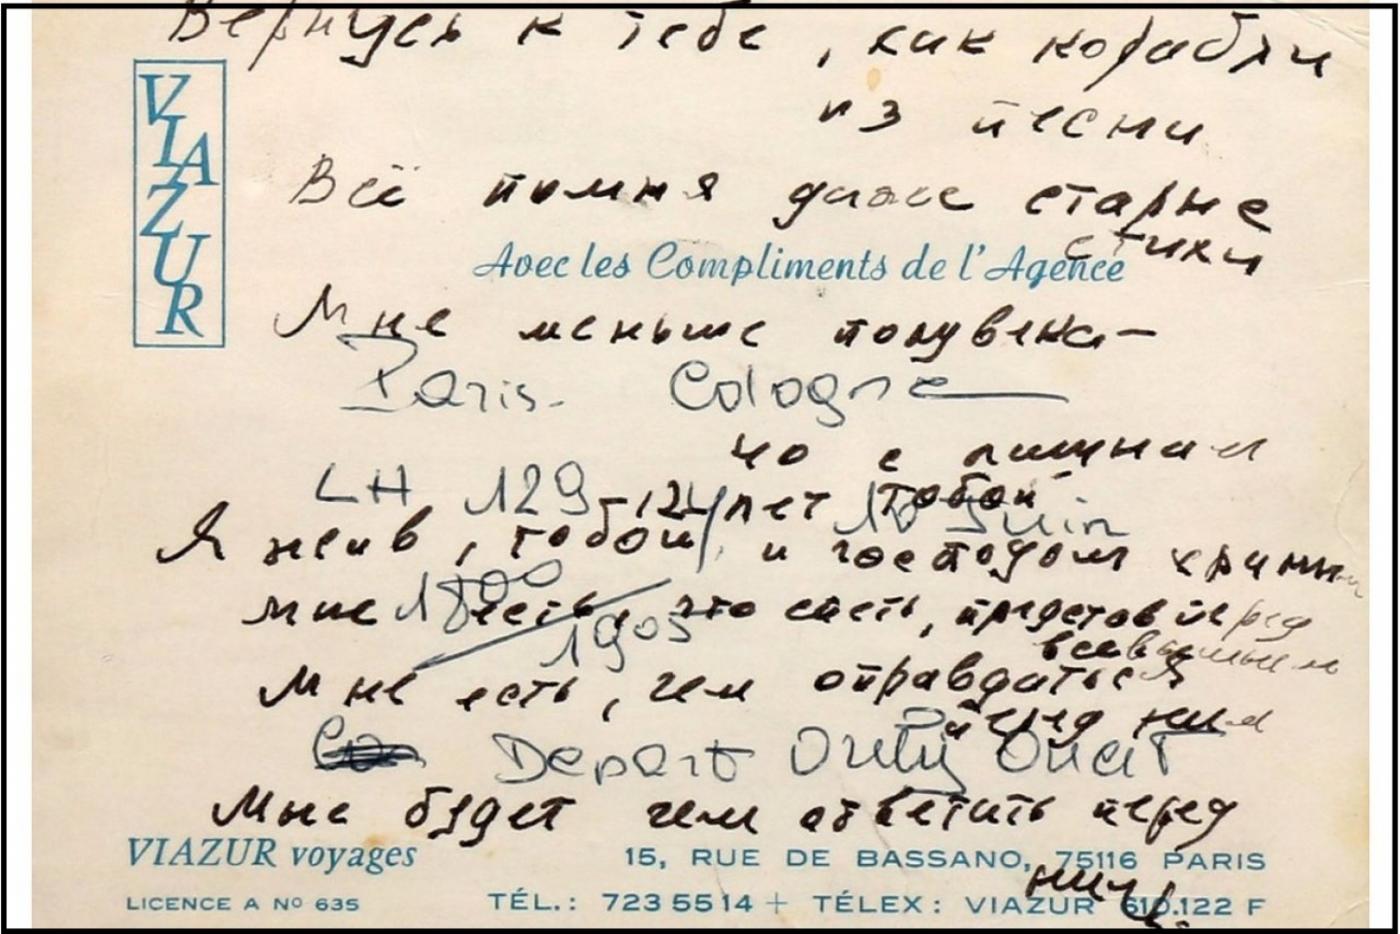 Вернусь к тебе, как корабли
из песни
VIAZUR
Всё помня даже старые
стихи
Avec les Compliments de l'Agence
Мне меньше полувека –
Paris. Cologne
40 с лишним
LH 129 – 12 лет тобой 10 Juin
Я жив, тобой и господом храним
1800
мне есть, что спеть, представ перед
1905
всевышним
Мне есть, чем оправдаться
перед ним
Depart Orly Ouest
Мне будет чем ответить перед
ним
VIAZUR voyages
15, RUE DE BASSANO, 75116 PARIS
LICENCE A Nº 635
TÉL.: 723 55 14 + TÉLEX: VIAZUR 610.122 F